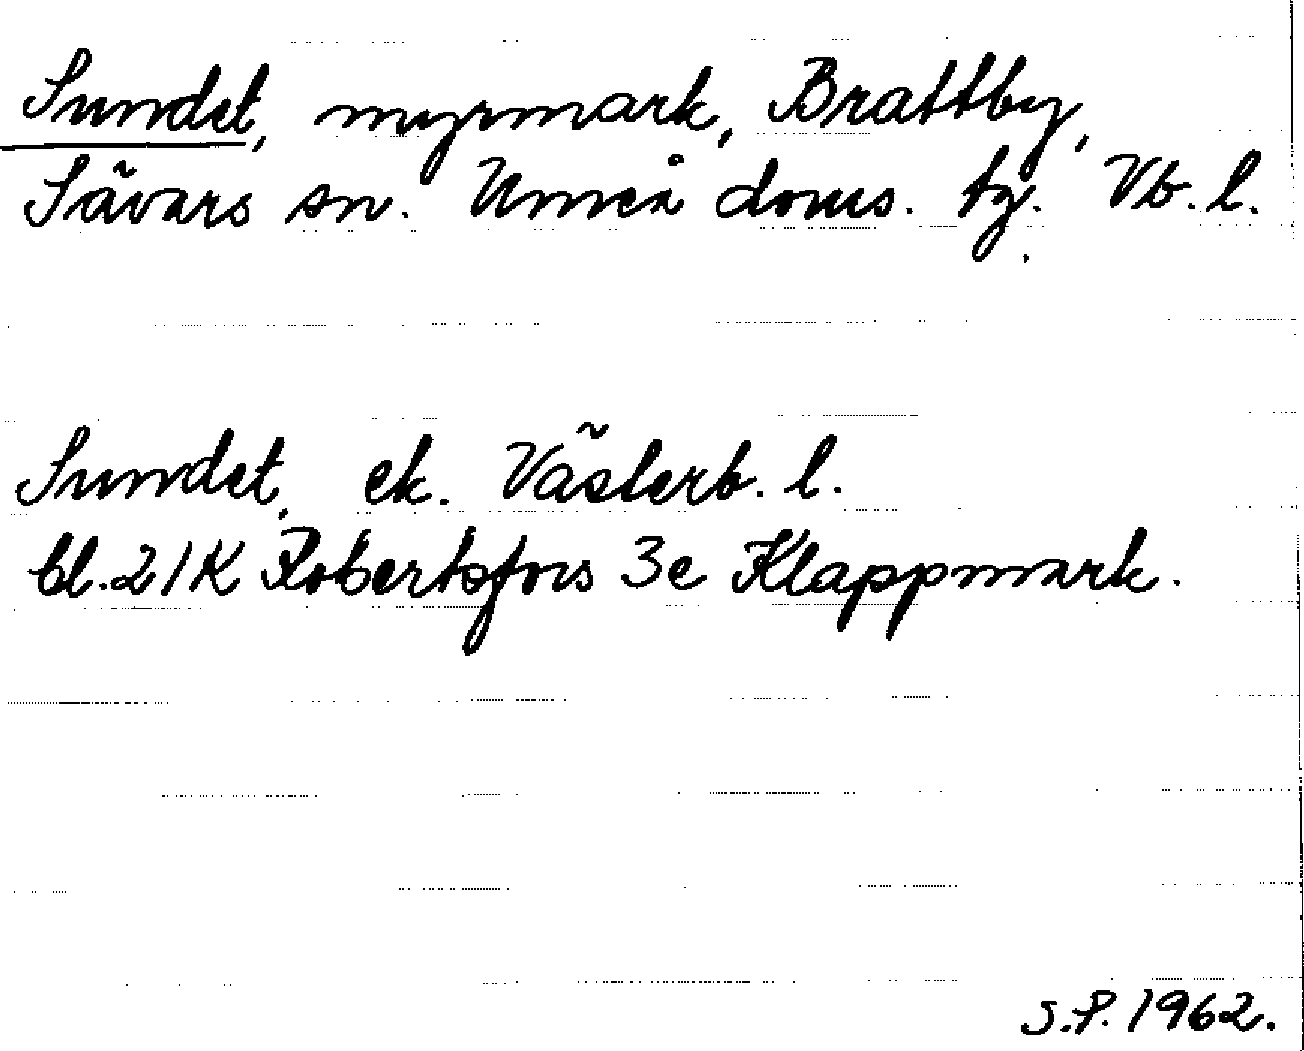 Sundet, myrmark, Brattby,
Sävars sn. Umeå doms. tg. Vb. l.
Sundet, ek. Västerb. l.
bl. 21K Robertsfors 3e Klappmark.
S.P. 1962.